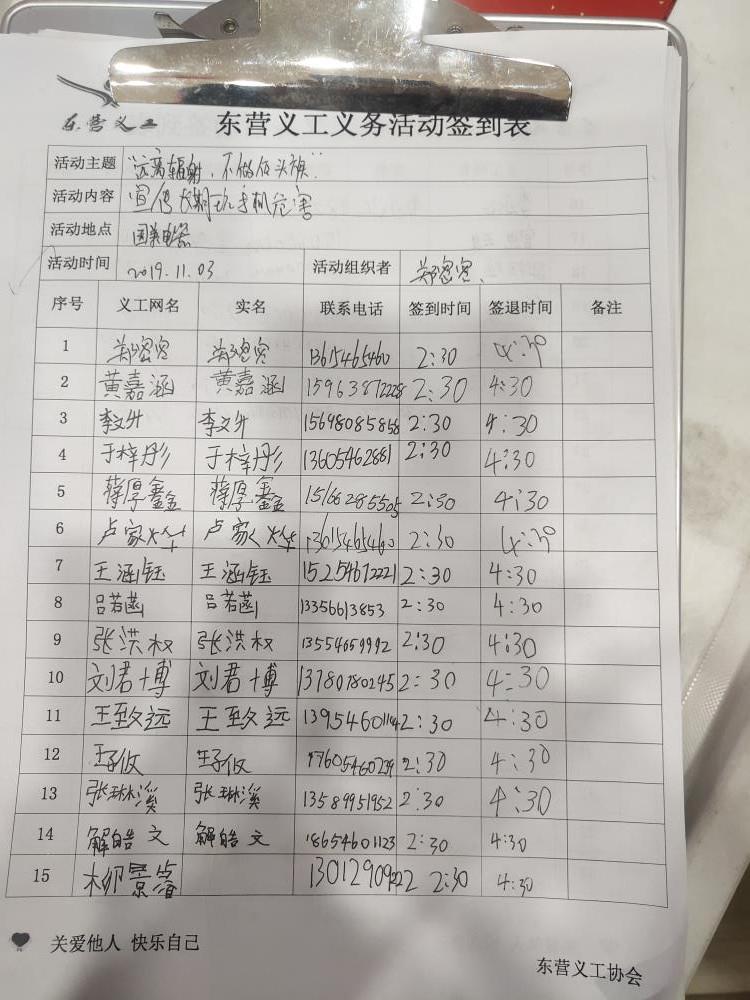 东营义工 东营义工义务活动签到表
活动主题 "远离辐射,不做低头族"
活动内容 宣传长期玩手机危害
活动地点 国美电器
活动时间 2019.11.03 活动组织者 郑
序号 义工网名 实名 联系电话 签到时间 签退时间 备注
1 郑 郑 13615465460 2:30 4:30
2 黄嘉涵 黄嘉涵 15963872228 2:30 4:30
3 李文升 李文升 15698085858 2:30 4:30
4 于梓彤 于梓彤 13605462881 2:30 4:30
5 薛厚鑫 薛厚鑫 15166285505 2:30 4:30
6 卢家烨 卢家烨 13615465460 2:30 4:30
7 王涵钰 王涵钰 15254672221 2:30 4:30
8 吕若菡 吕若菡 13356613853 2:30 4:30
9 张洪权 张洪权 13554659992 2:30 4:30
10 刘君博 刘君博 13780780245 2:30 4:30
11 王致远 王致远 13954601144 2:30 4:30
12 17605460239 2:30 4:30
13 张琳溪 张琳溪 13589951952 2:30 4:30
14 解皓文 解皓文 18654601123 2:30 4:30
15 柳景 2:30 4:30
关爱他人 快乐自己
东营义工协会